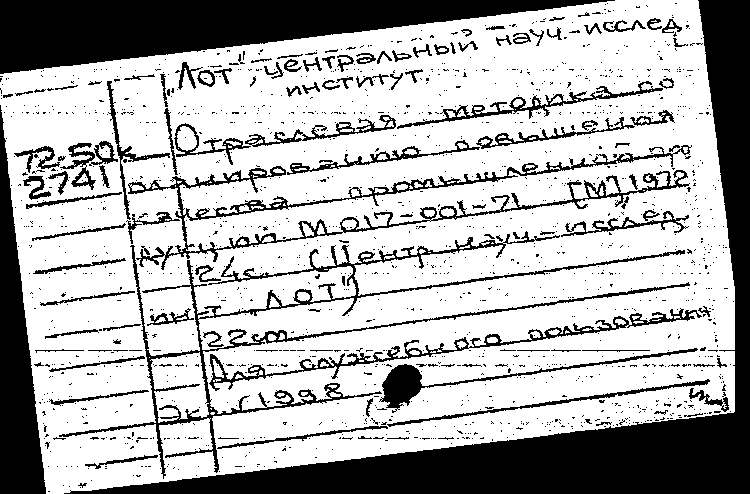 "Лот", центральный науч.-исслед.
институт.
72.50к
2741
Отраслевая методика по
планированию повышения
качества промышленной про
дукции М 017-001-71. [М] 1972
24с. (Центр. науч.-исслед.
инст. "ЛОТ")
22cm
Для служебного пользования
Экз. № 1998